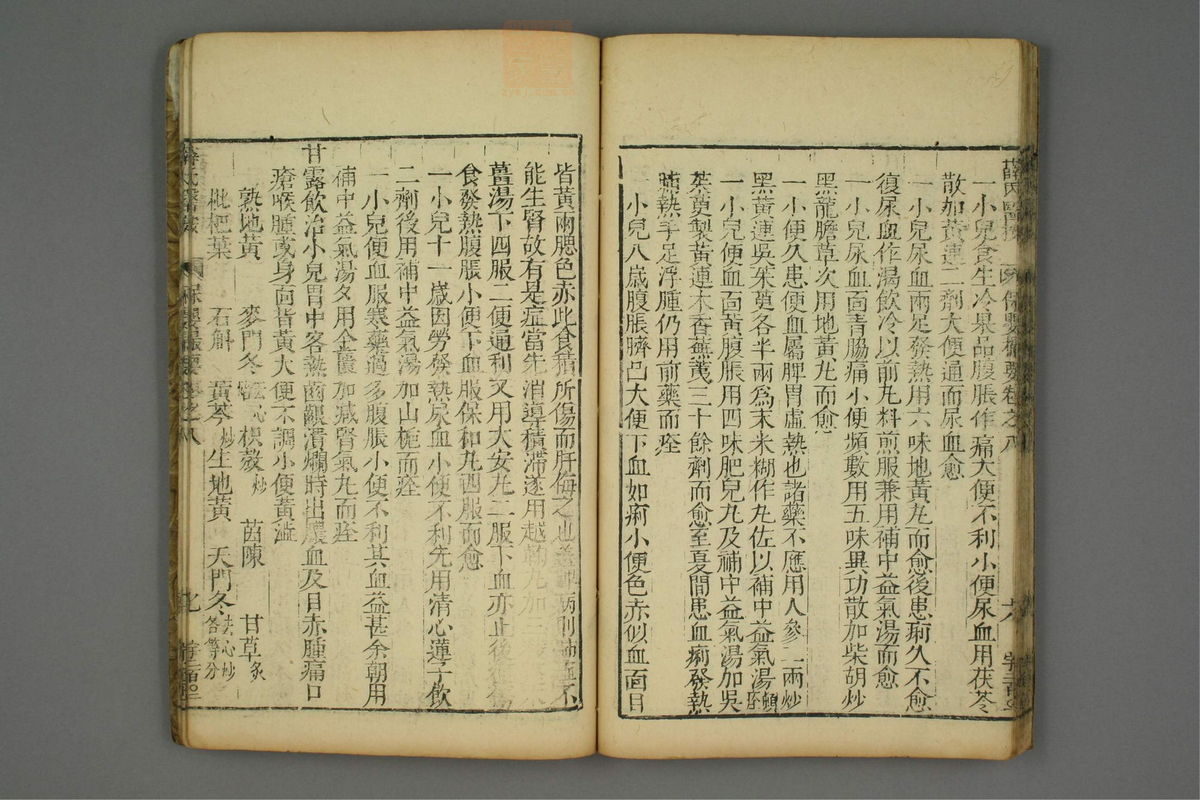 一小兒食生冷果品腹脹作痛大便不利小便尿血用茯苓
散加黃連二劑大便通而尿血愈
一小兒尿血兩足發熱用六味地黃丸而愈後患痢久不愈
復尿血作渴飲冷以前丸料煎服兼用補中益氣湯而愈
一小兒尿血面青脇痛小便頻數用五味異功散加柴胡炒
黑龍膽草次用地黃丸而愈
一小便久患便血屬脾胃虛熱也諸藥不應用人參二兩炒
黑黃連吳茱萸各半兩為末米糊作丸佐以補中益氣湯頓痊
一小兒便血面黃腹脹用四味肥兒丸及補中益氣湯加吳
茱萸製黃連木香蕪荑三十餘劑而愈至夏間患血痢發熱
輔熱手足浮腫仍用前藥而痊
一小兒八歲腹脹臍凸大便下血如痢小便色赤似血面目
皆黃兩腮色赤此食積所傷而肝侮之也
能生腎故有是症當先消導積滯遂用越鞠丸加
薑湯下四服二便通利又用大安丸二服下血亦止後
食發熱腹脹小便下血服保和丸四服而愈
一小兒十一歲因勞發熱尿血小便不利先用清心蓮子飲
二劑後用補中益氣湯加山梔而痊
一小兒便血服寒藥過多腹脹小便不利其血益甚余朝用
補中益氣湯夕用金匱加減腎氣丸而痊
甘露飲治小兒胃中客熱齒齦潰爛時出膿血及目赤腫痛口
瘡喉腫或身面皆黃大便不調小便黃澁
熟地黃 麥門冬去心 枳殼炒 茵陳 甘草炙
枇杷葉 石斛 黃芩炒 生地黃 天門冬去心炒各等分